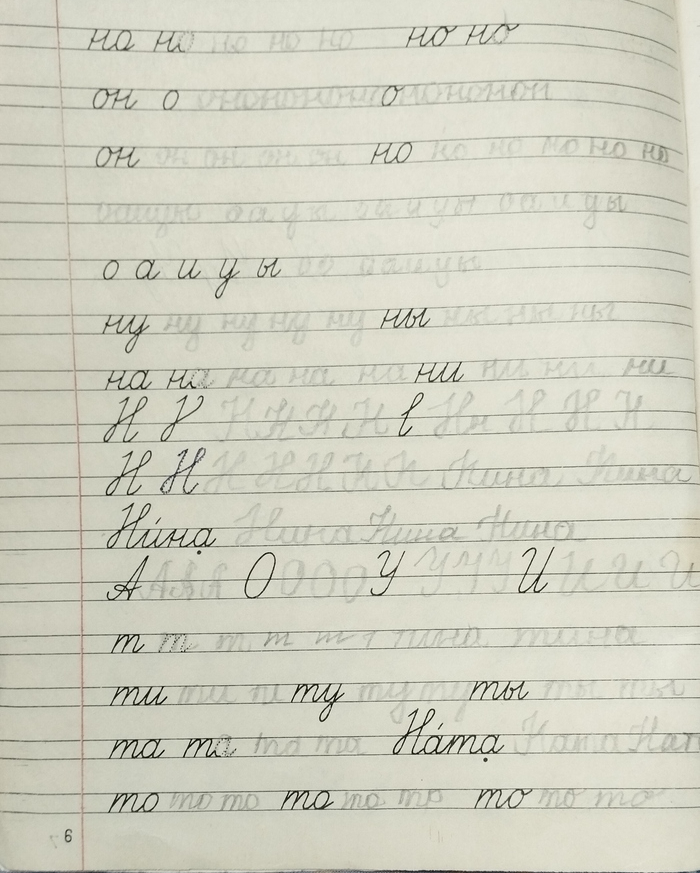 но но но но но но но
он о онононононононононон
он он он он он но но но но но но
оаиуы оаиуы оаиуы оаиуы
о а и у ы оо оаиуы
ну ну ну ну ну ны ны ны ны
на на на на на ни ни ни ни
Н Н Н Н Н Н Н Н Н
Н Н Н Н Н Н Н Нина Нина
Ни́на Нина Нина Нина
А А А А О О О О У У У У И И И И
т т т т т т тина тина
ти ти ти ту ту ту ты ты ты
та та та та На́та Ната Нат
то то то то то то то то то
6